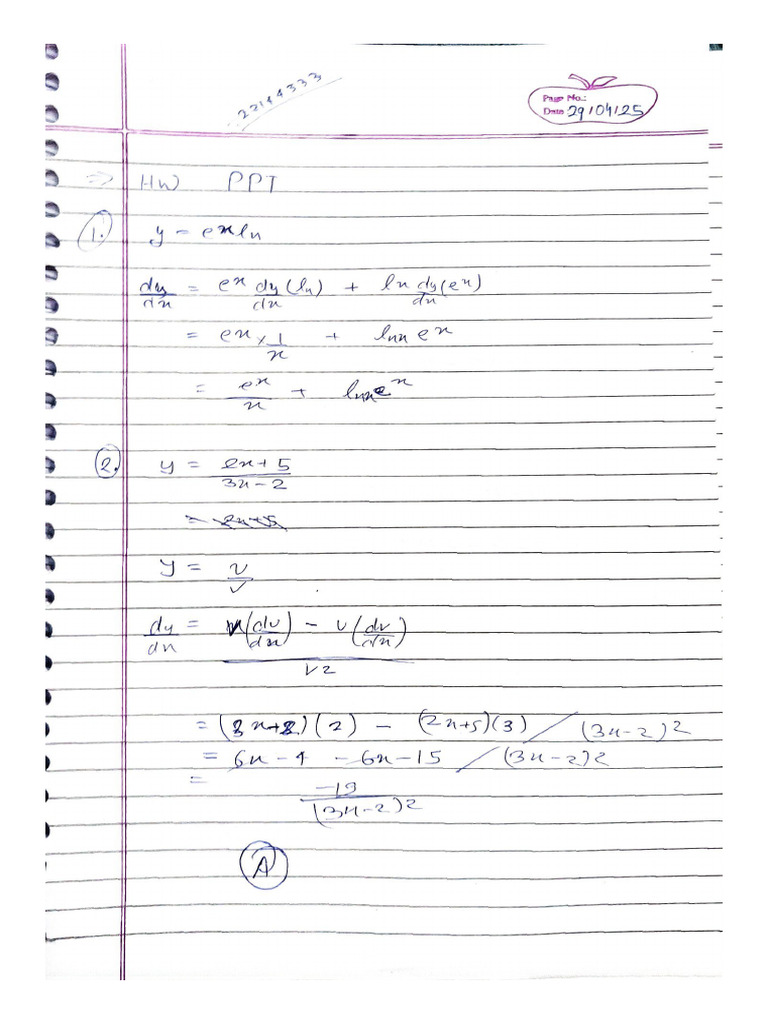 22144333
Page No.:
Date 29/04/25
=> HW PPT
1. y = e^x ln
dy/dx = e^x dy/dx (ln) + ln dy/dx (e^x)
= e^x × 1/x + lnx e^x
= e^x/x + lnx e^x
2. y = 2x+5 / 3x-2
= 2x+5
y = u/v
dy/dx = v(du/dx) - u(dv/dx) / v2
= (3x-2)(2) - (2x+5)(3) / (3x-2)^2
= 6x-4 -6x-15 / (3x-2)2
= -19 / (3x-2)2
A